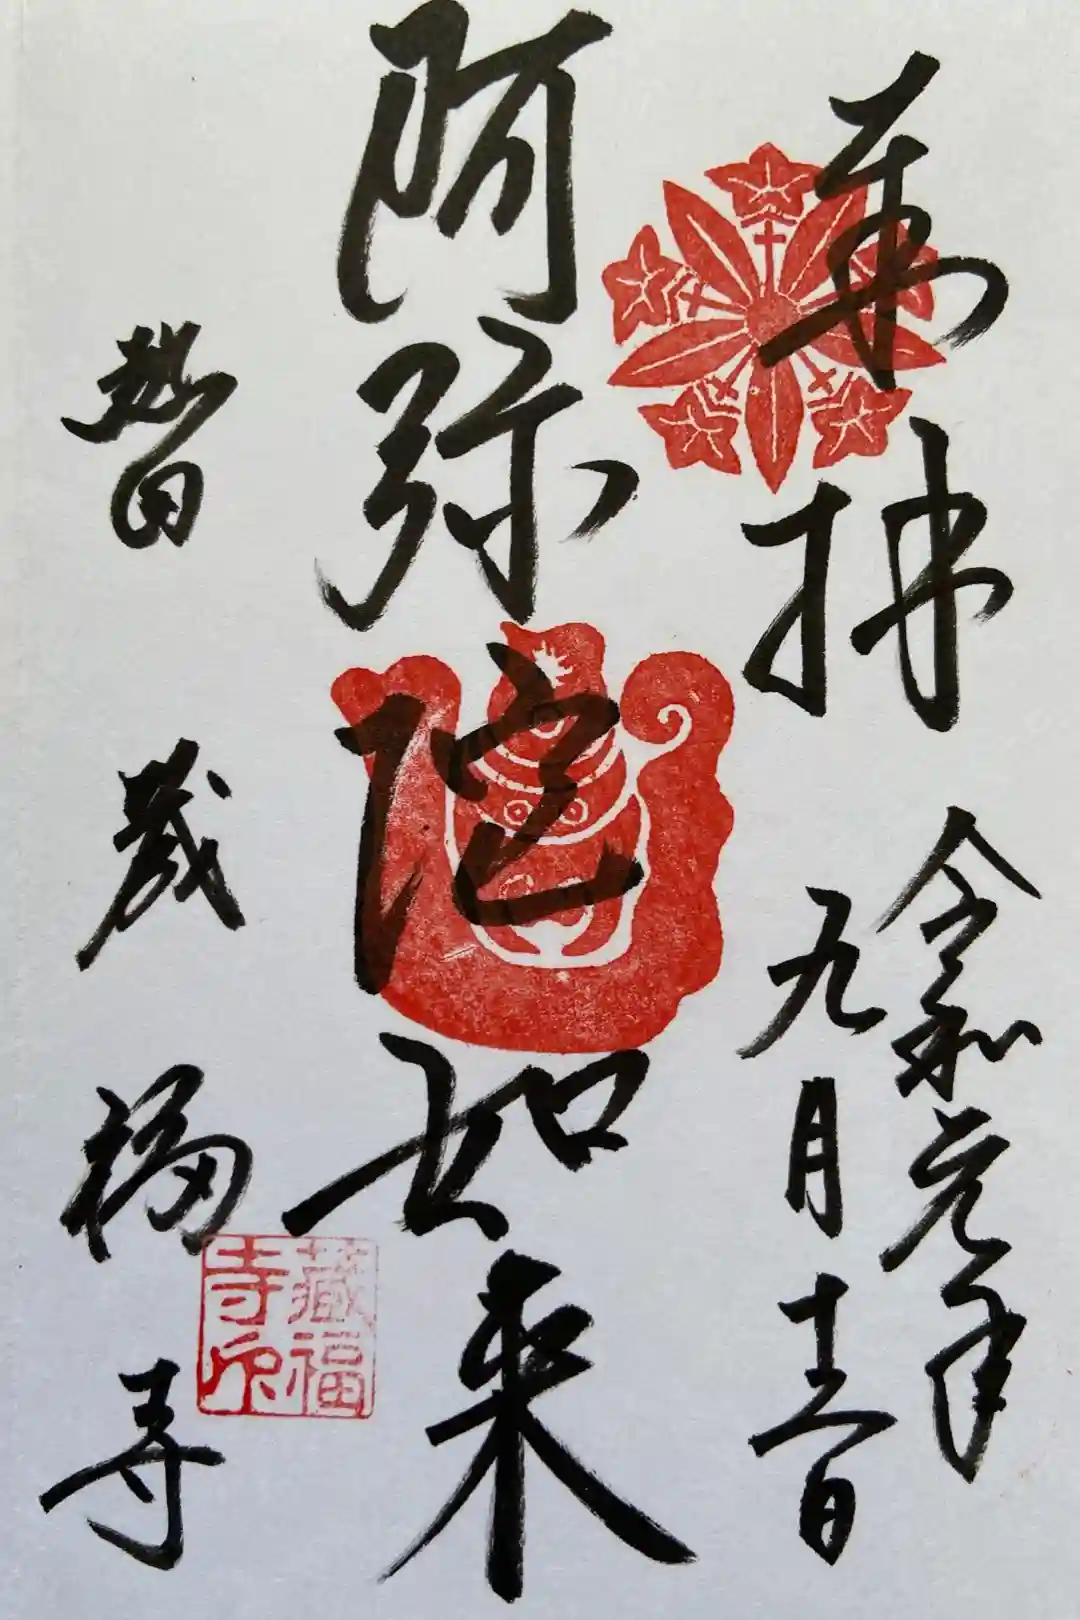 奉拝
令和元年
九月十六日
阿弥陀如来
熱田
蔵福寺
藏福
寺印